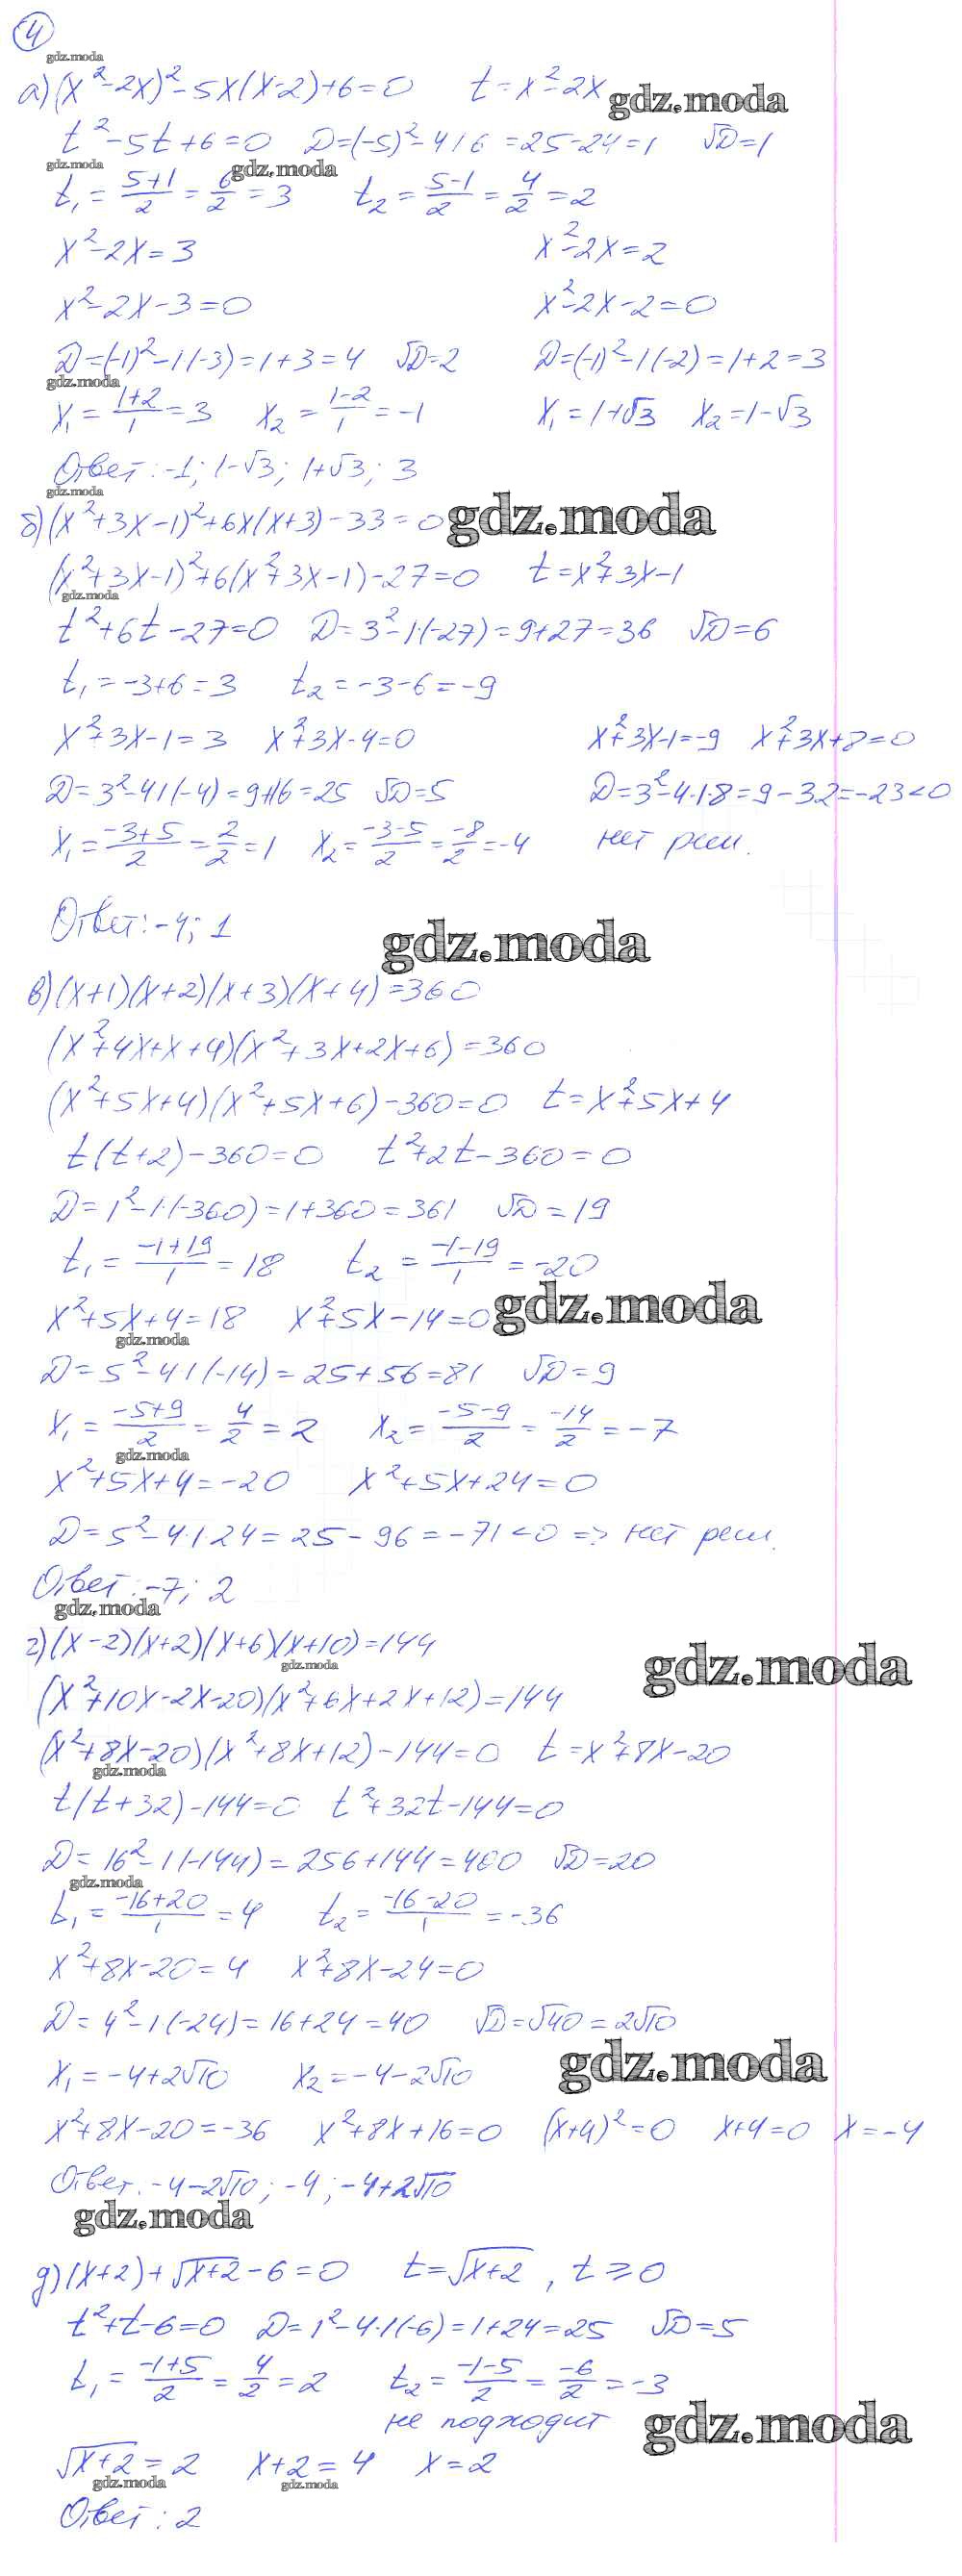 4
gdz.moda
а) (x²-2x)²-5x(x-2)+6=0 t=x²-2x gdz.moda
t²-5t+6=0 D=(-5)²-4·1·6=25-24=1 √D=1
gdz.moda gdz.moda
t₁=(5+1)/2=6/2=3 t₂=(5-1)/2=4/2=2
x²-2x=3 x²-2x=2
x²-2x-3=0 x²-2x-2=0
D=(-1)²-1·(-3)=1+3=4 √D=2 D=(-1)²-1·(-2)=1+2=3
gdz.moda
x₁=(1+2)/1=3 x₂=(1-2)/1=-1 x₁=1+√3 x₂=1-√3
Ответ: -1; 1-√3; 1+√3; 3
gdz.moda
б) (x²+3x-1)²+6x(x+3)-33=0 gdz.moda
(x²+3x-1)²+6(x²+3x-1)-27=0 t=x²+3x-1
gdz.moda
t²+6t-27=0 D=3²-1·(-27)=9+27=36 √D=6
t₁=-3+6=3 t₂=-3-6=-9
x²+3x-1=3 x²+3x-4=0 x²+3x-1=-9 x²+3x+8=0
D=3²-4·1·(-4)=9+16=25 √D=5 D=3²-4·1·8=9-32=-23<0
x₁=(-3+5)/2=2/2=1 x₂=(-3-5)/2=-8/2=-4 нет реш.
Ответ: -4; 1
gdz.moda
в) (x+1)(x+2)(x+3)(x+4)=360
(x²+4x+x+4)(x²+3x+2x+6)=360
(x²+5x+4)(x²+5x+6)-360=0 t=x²+5x+4
t(t+2)-360=0 t²+2t-360=0
D=1²-1·(-360)=1+360=361 √D=19
t₁=(-1+19)/1=18 t₂=(-1-19)/1=-20
x²+5x+4=18 x²+5x-14=0 gdz.moda
gdz.moda
D=5²-4·1·(-14)=25+56=81 √D=9
x₁=(-5+9)/2=4/2=2 x₂=(-5-9)/2=-14/2=-7
gdz.moda
x²+5x+4=-20 x²+5x+24=0
D=5²-4·1·24=25-96=-71<0 => нет реш.
Ответ: -7; 2
gdz.moda
г) (x-2)(x+2)(x+6)(x+10)=144
gdz.moda gdz.moda
(x²+10x-2x-20)(x²+6x+2x+12)=144
(x²+8x-20)(x²+8x+12)-144=0 t=x²+8x-20
gdz.moda
t(t+32)-144=0 t²+32t-144=0
D=16²-1·(-144)=256+144=400 √D=20
gdz.moda
t₁=(-16+20)/1=4 t₂=(-16-20)/1=-36
x²+8x-20=4 x²+8x-24=0
D=4²-1·(-24)=16+24=40 √D=√40=2√10
x₁=-4+2√10 x₂=-4-2√10 gdz.moda
x²+8x-20=-36 x²+8x+16=0 (x+4)²=0 x+4=0 x=-4
Ответ. -4-2√10; -4; -4+2√10
gdz.moda
д) (x+2)+√(x+2)-6=0 t=√(x+2), t≥0
t²+t-6=0 D=1²-4·1·(-6)=1+24=25 √D=5
t₁=(-1+5)/2=4/2=2 t₂=(-1-5)/2=-6/2=-3
не подходит gdz.moda
√(x+2)=2 x+2=4 x=2
gdz.moda gdz.moda
Ответ: 2